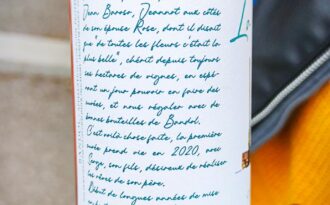 Jean Baroso, Jeannot aux côtés
de son épouse Rose, dont il disait
que "de toutes les fleurs c'était la
plus belle", chérit depuis toujours
ses hectares de vignes, en espé-
rant un jour pouvoir en faire des
cuvées, et nous régaler avec de
bonnes bouteilles de Bandol.
C'est voilà chose faite, la première
cuvée prend vie en 2020, avec
Serge, son fils, désireux de réaliser
les rêves de son père.
Début de longues années de mise